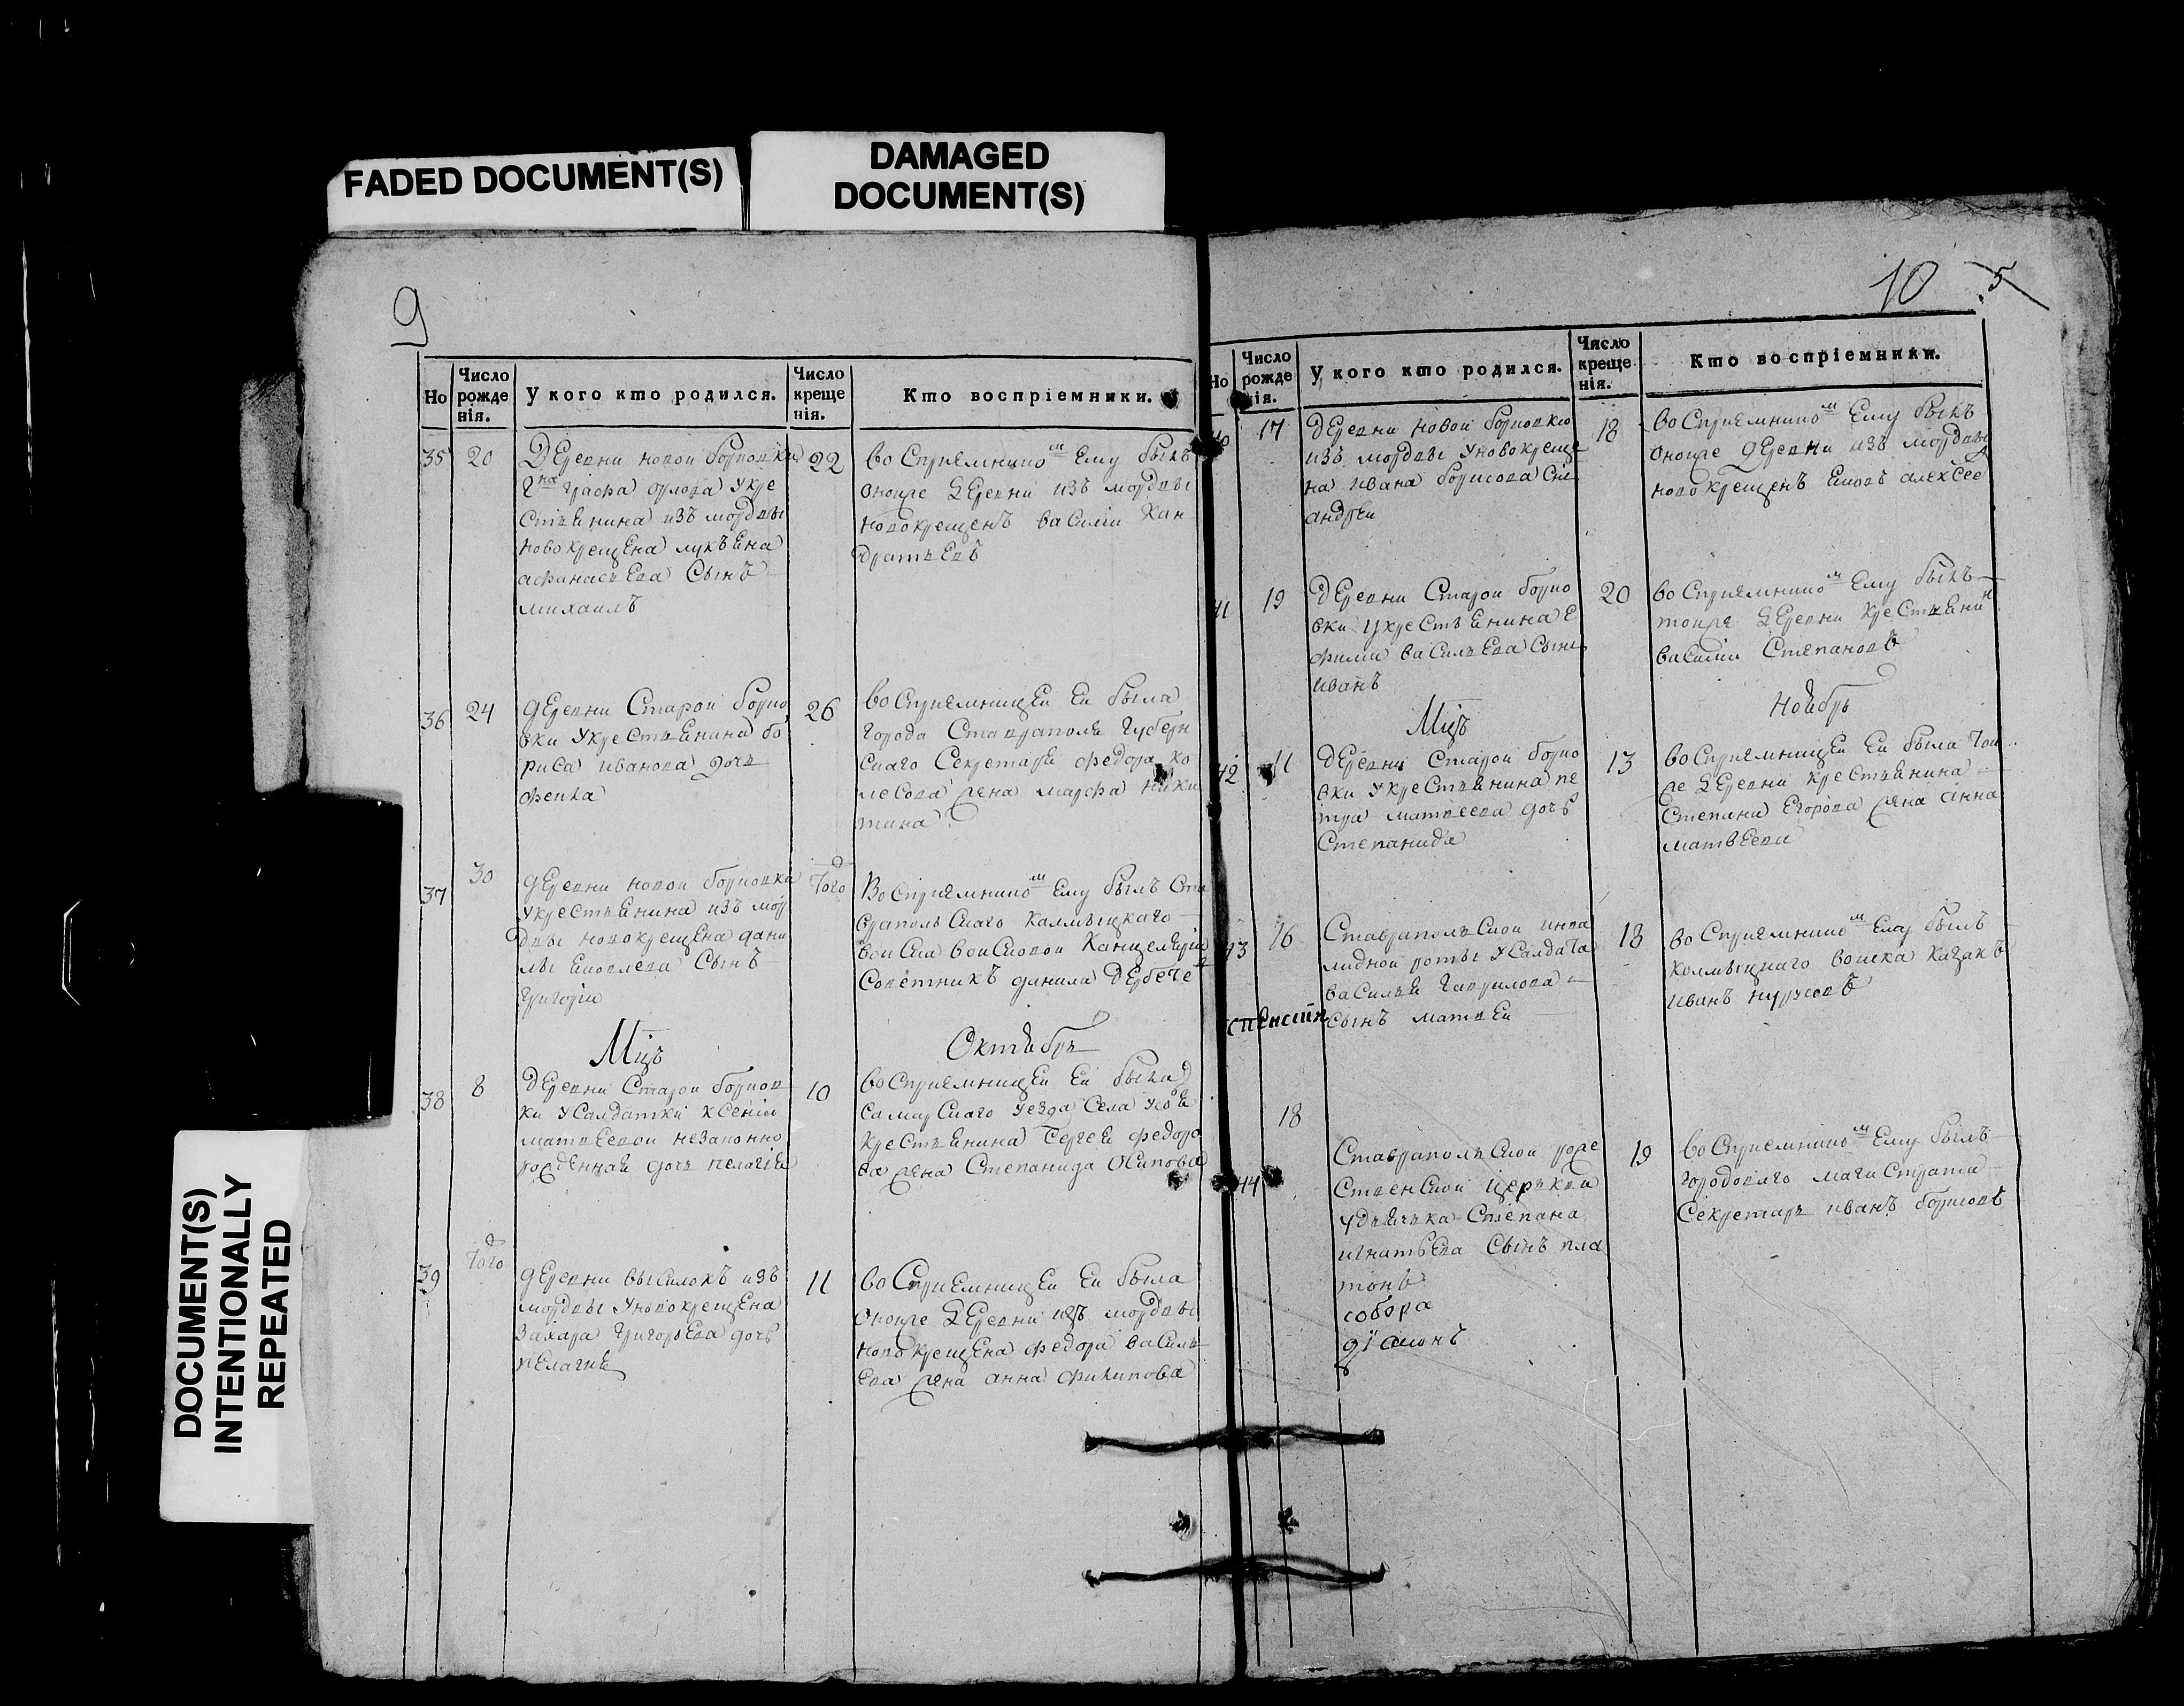 FADED DOCUMENT(S)
DAMAGED
DOCUMENT(S)
DOCUMENT(S)
INTENTIONALLY
REPEATED
9
Но
Число
рожде
нія.
У кого кто родился.
Число
креще
нія.
Кто воспріемники.
35
20
Деревни новой борковки
гна графа орлова укре
стьянина изъ мордвы
новокрещена лукьяна
афанасьева сынъ
михаилъ
22
воспріемникомъ ему былъ
оноиже деревни изъ мордвы
новокрещенъ василіи кан
дратьевъ
36
24
деревни старой борко
вки укрестьянина бо
риса иванова дочь
фекла
26
воспріемницеи еи была
города ставраполя губерн
скаго секретаря федора ко
лесова жена марфа ники
тина
37
30
деревни новой борковка
укрестьянина изъ мор
двы новокрещена дани
лы яковлева сынъ
григорій
того
воспріемникомъ ему былъ ста
врапольскаго калмыцкаго
воиска воисковой канцеляріи
советникъ данила дербете
Мцъ
Октябрь
38
8
деревни старой борков
ки усалдатки ксеніи
матвеевой незаконно
рожденная дочь пелагія
10
воспріемницеи еи была
самарскаго уезда села
крестьянина сергея федоро
ва жена степанида осипова
39
того
деревни выселокъ изъ
мордвы уновокрещена
захара григорьева дочь
пелагия
11
воспріемницеи еи была
оноиже деревни изъ мордвы
новокрещена федора василь
ева жена анна филипова
10
5
Но
Число
рожде
нія.
У кого кто родился.
Число
креще
нія.
Кто воспріемники.
40
17
деревни новой борковки
изъ мордвы уновокреще
на ивана борисова снъ
андреи
18
воспріемникомъ ему былъ
оноиже деревни изъ мордвы
новокрещенъ алексее
41
19
деревни старой борко
вки укрестьянина е
фима васильева сынъ
иванъ
20
воспріемникомъ ему былъ
тоиже деревни крестьянинъ
василіи степановъ
Мцъ
Ноябрь
42
11
деревни старой борко
вки укрестьянина пе
тра матвеева дочь
степанида
13
воспріемницеи еи была тои
же деревни крестьянина
степана егорова жена анна
матвеева
43
16
ставрапольской инва
лидной роты усалдата
василья гаврилова
сынъ матвеи
18
воспріемникомъ ему былъ
колмыцкаго воиска казакъ
иванъ
44
18
ставрапольской роже
ственской церькви
удьячька степана
игнатьева сынъ пла
тонъ
собора
діаконъ
19
воспріемникомъ ему былъ
городоваго магистрата
секретарь иванъ борисовъ